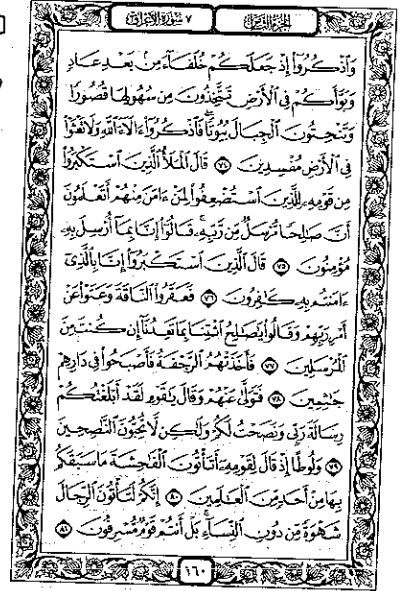 الجزء الثامن
٧ سورة الأعراف
وَٱذْكُرُوٓا۟ إِذْ جَعَلَكُمْ خُلَفَآءَ مِنۢ بَعْدِ عَادٍ
وَبَوَّأَكُمْ فِى ٱلْأَرْضِ تَتَّخِذُونَ مِن سُهُولِهَا قُصُورًا
وَتَنْحِتُونَ ٱلْجِبَالَ بُيُوتًا فَٱذْكُرُوٓا۟ ءَالَآءَ ٱللَّهِ وَلَا تَعْثَوْا۟
فِى ٱلْأَرْضِ مُفْسِدِينَ ٧٤ قَالَ ٱلْمَلَأُ ٱلَّذِينَ ٱسْتَكْبَرُوا۟
مِن قَوْمِهِۦ لِلَّذِينَ ٱسْتُضْعِفُوا۟ لِمَنْ ءَامَنَ مِنْهُمْ أَتَعْلَمُونَ
أَنَّ صَـٰلِحًا مُّرْسَلٌ مِّن رَّبِّهِۦ قَالُوٓا۟ إِنَّا بِمَآ أُرْسِلَ بِهِۦ
مُؤْمِنُونَ ٧٥ قَالَ ٱلَّذِينَ ٱسْتَكْبَرُوٓا۟ إِنَّا بِٱلَّذِىٓ
ءَامَنتُم بِهِۦ كَـٰفِرُونَ ٧٦ فَعَقَرُوا۟ ٱلنَّاقَةَ وَعَتَوْا۟ عَنْ
أَمْرِ رَبِّهِمْ وَقَالُوا۟ يَـٰصَـٰلِحُ ٱئْتِنَا بِمَا تَعِدُنَآ إِن كُنتَ مِنَ
ٱلْمُرْسَلِينَ ٧٧ فَأَخَذَتْهُمُ ٱلرَّجْفَةُ فَأَصْبَحُوا۟ فِى دَارِهِمْ
جَـٰثِمِينَ ٧٨ فَتَوَلَّىٰ عَنْهُمْ وَقَالَ يَـٰقَوْمِ لَقَدْ أَبْلَغْتُكُمْ
رِسَالَةَ رَبِّى وَنَصَحْتُ لَكُمْ وَلَـٰكِن لَّا تُحِبُّونَ ٱلنَّـٰصِحِينَ
٧٩ وَلُوطًا إِذْ قَالَ لِقَوْمِهِۦٓ أَتَأْتُونَ ٱلْفَـٰحِشَةَ مَا سَبَقَكُم
بِهَا مِنْ أَحَدٍ مِّنَ ٱلْعَـٰلَمِينَ ٨٠ إِنَّكُمْ لَتَأْتُونَ ٱلرِّجَالَ
شَهْوَةً مِّن دُونِ ٱلنِّسَآءِ بَلْ أَنتُمْ قَوْمٌ مُّسْرِفُونَ ٨١
١٦٠